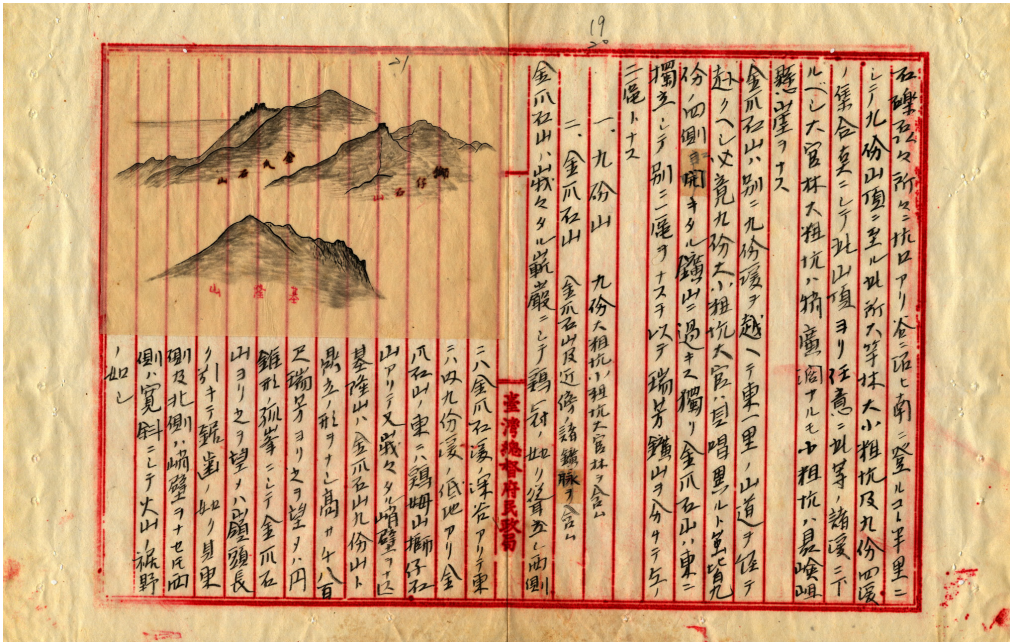 19
20
石礫磊々所々ニ坑口アリ谷ニ沿ヒ南ニ登ルコト半里ニ
シテ九份山頂ニ至ル此所大竿林大小粗坑及九份四渓
ノ集合点ニシテ此山頂ヨリ任意ニ此等ノ諸渓ニ下
ルベシ大官林大粗坑ハ稍廣闊ナルモ小粗坑ハ昷嶮岨
懸崖ヲナス
金爪石山ハ別ニ九份渓ヲ越ヘテ東一里ノ山道ヲ経テ
赴クヘシ必竟九份大小粗坑大官ハ其唱異ルト虽皆九
份ノ四側ヨリ開キタル鑛山ニ過キス獨リ金爪石山ハ東ニ
獨立シテ別ニ一座ヲナスヲ以テ瑞芳鑛山ヲ分チテ左ノ
二座トナス
一、九份山 九份大粗坑小粗坑大官林ヲ含ム
二、金爪石山 金爪石山及近傍ノ諸鑛脉ヲ含ム
金爪石山ハ峩々タル巌ニシテ鶏冠ノ如ク聳立シ両側
臺灣總督府民政局
21
金瓜石山
獅仔石山
基隆山
ニハ金爪石渓ノ深谷アリテ東
ニハ内九份渓ノ低地アリ金
爪石山ノ東ニハ鶏姆山獅仔石
山アリテ又峩々タル峭壁ヲナス
基隆山ハ金爪石山九份山ト
鼎立ノ形ヲナシ高サ千八百
尺瑞芳ヨリ之ヲ望メハ円
錐形ノ孤峯ニシテ金爪石
山ヨリ之ヲ望メハ山嶺頭長
ク引キテ鋸歯ノ如ク其東
側及北側ハ峭壁ヲナセ圧西
側ハ寛斜ニシテ火山ノ裾野
ノ如シ